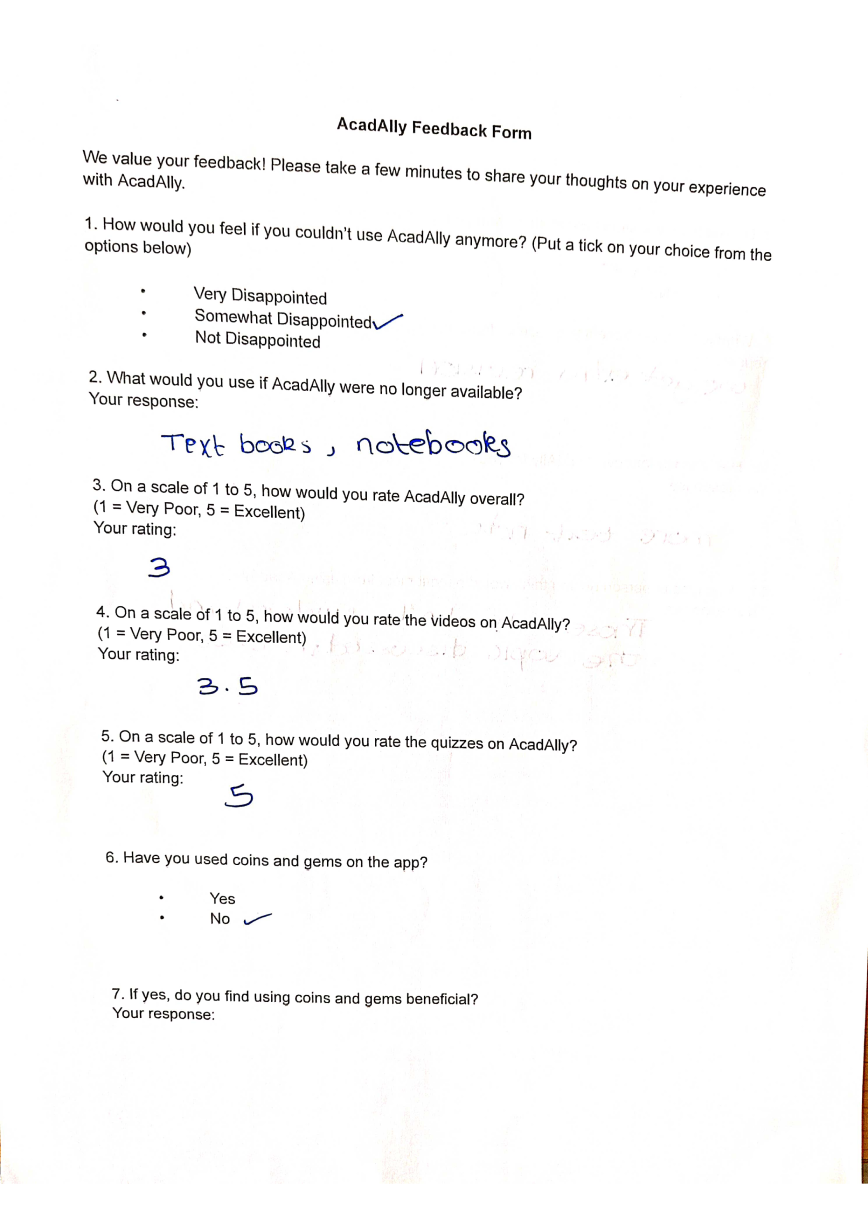 AcadAlly Feedback Form
We value your feedback! Please take a few minutes to share your thoughts on your experience
with AcadAlly.
1. How would you feel if you couldn't use AcadAlly anymore? (Put a tick on your choice from the
options below)
• Very Disappointed
• Somewhat Disappointed ✓
• Not Disappointed
2. What would you use if AcadAlly were no longer available?
Your response:
Text books, notebooks
3. On a scale of 1 to 5, how would you rate AcadAlly overall?
(1 = Very Poor, 5 = Excellent)
Your rating:
3
4. On a scale of 1 to 5, how would you rate the videos on AcadAlly?
(1 = Very Poor, 5 = Excellent)
Your rating:
3.5
5. On a scale of 1 to 5, how would you rate the quizzes on AcadAlly?
(1 = Very Poor, 5 = Excellent)
Your rating:
5
6. Have you used coins and gems on the app?
• Yes
• No ✓
7. If yes, do you find using coins and gems beneficial?
Your response: